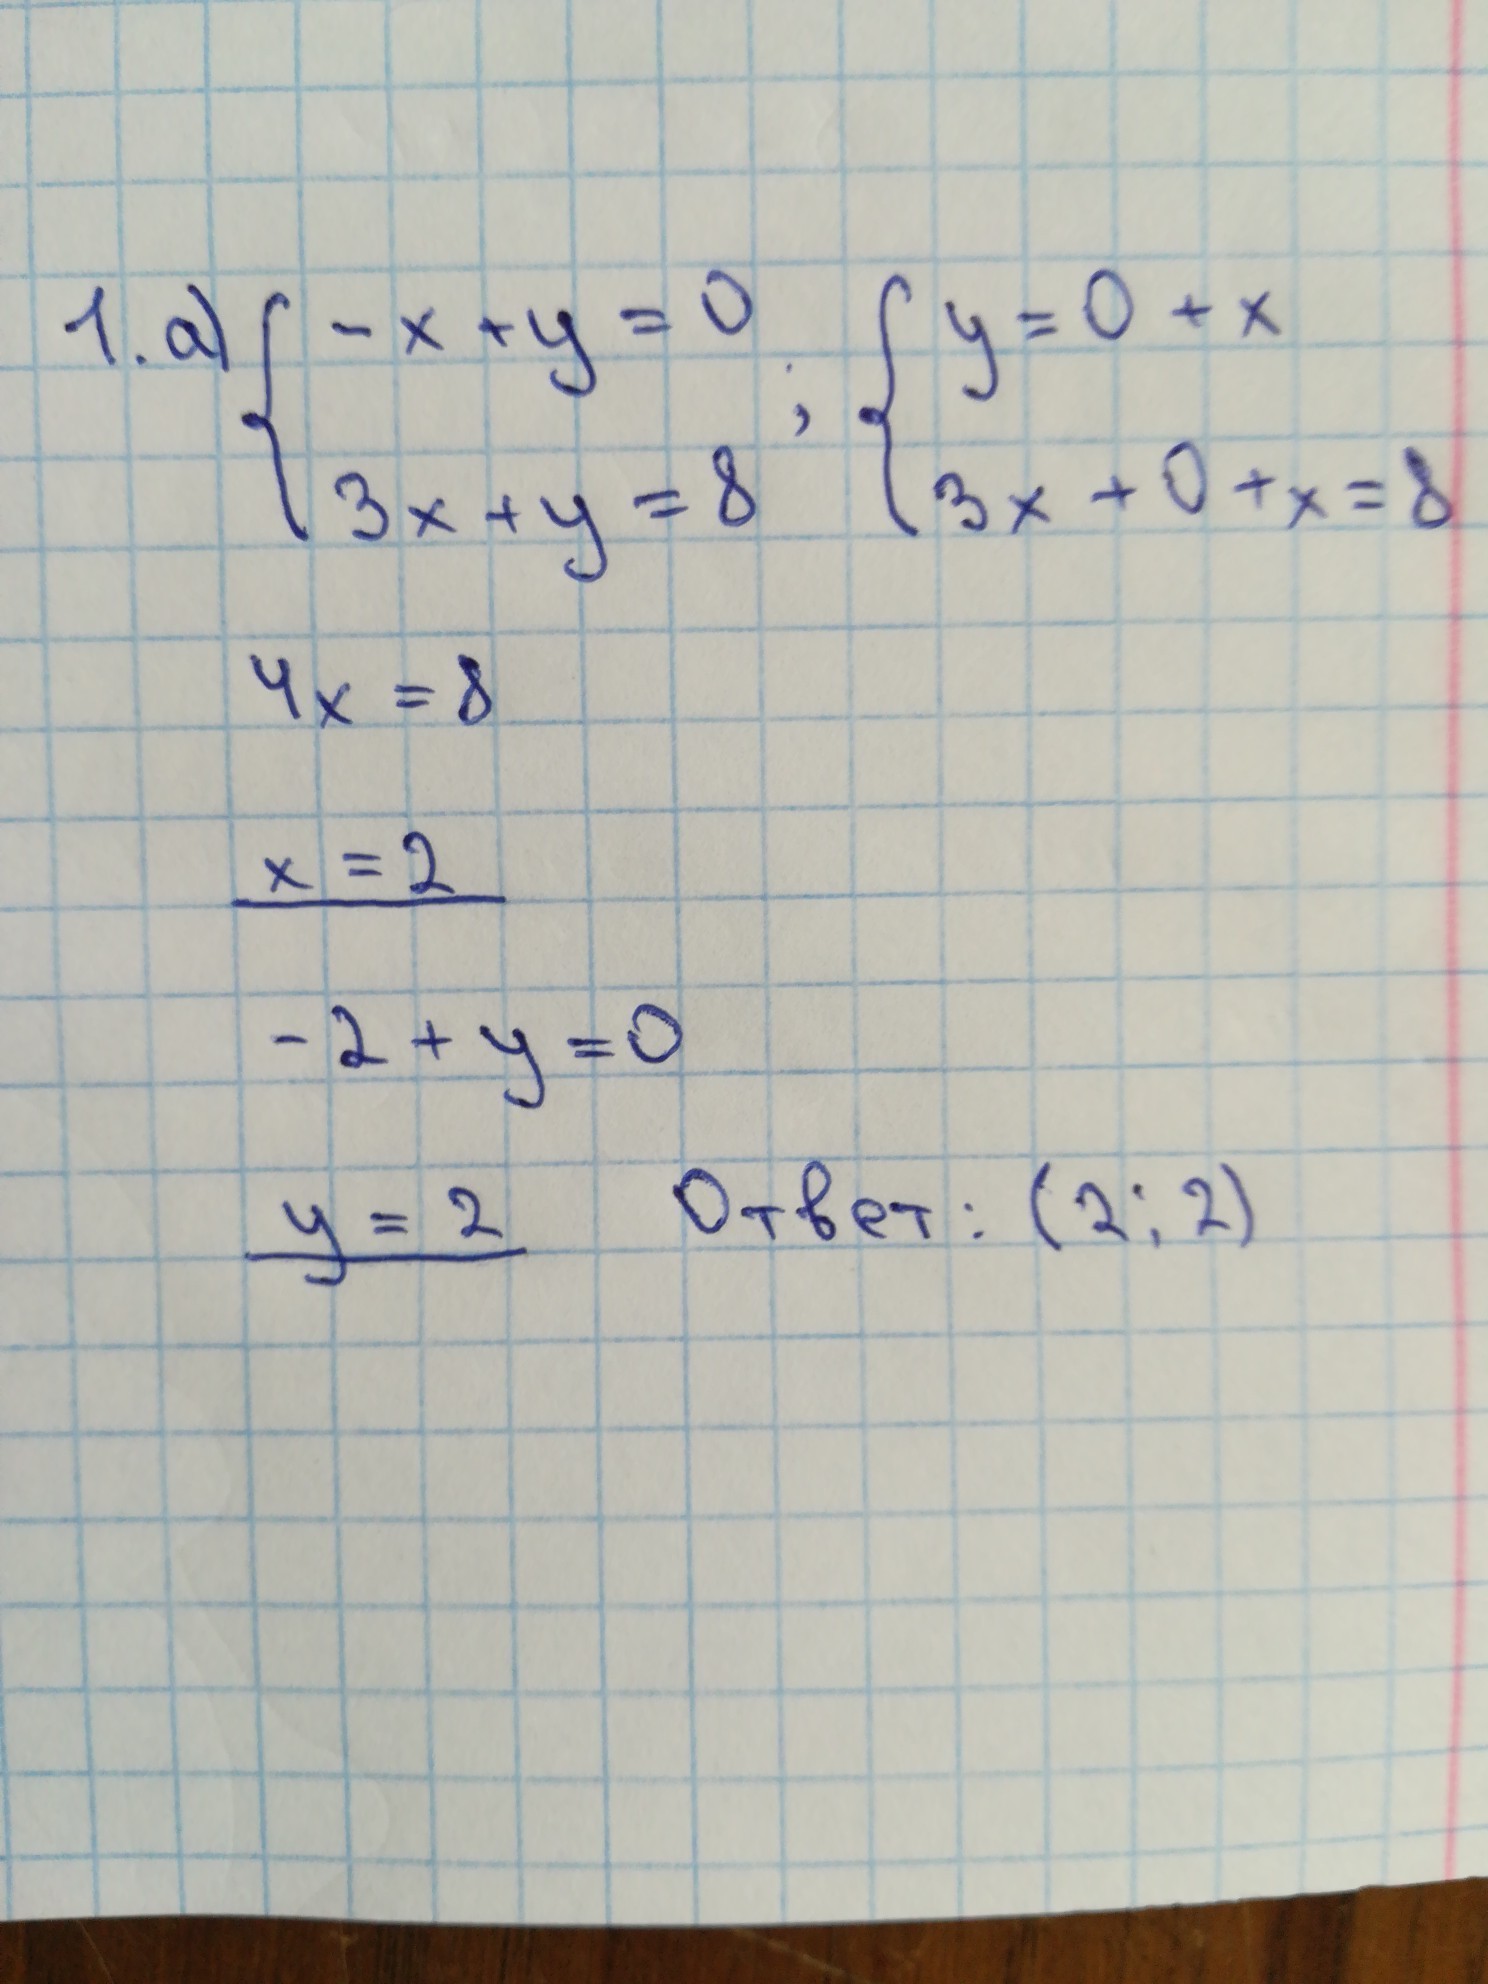 1. а) { -x + y = 0 ; { y = 0 + x
3x + y = 8 3x + 0 + x = 8
4x = 8
x = 2
-2 + y = 0
y = 2 Ответ: (2; 2)